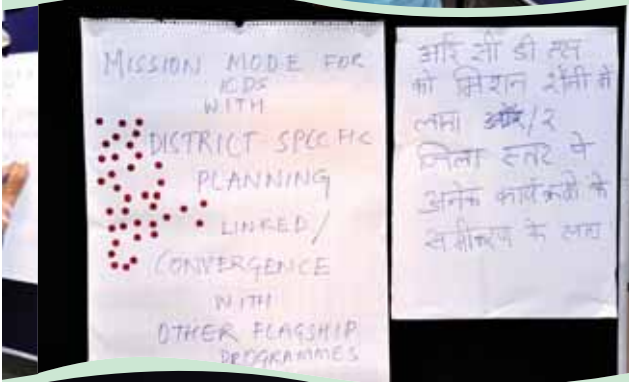 MISSION MODE FOR
ICDS
WITH
DISTRICT SPECIFIC
PLANNING
LINKED/
CONVERGENCE
WITH
OTHER FLAGSHIP
PROGRAMMES
आई सी डी एस
को मिशन शैली में
जिला स्तर पे
अनेक कार्यक्रमों के